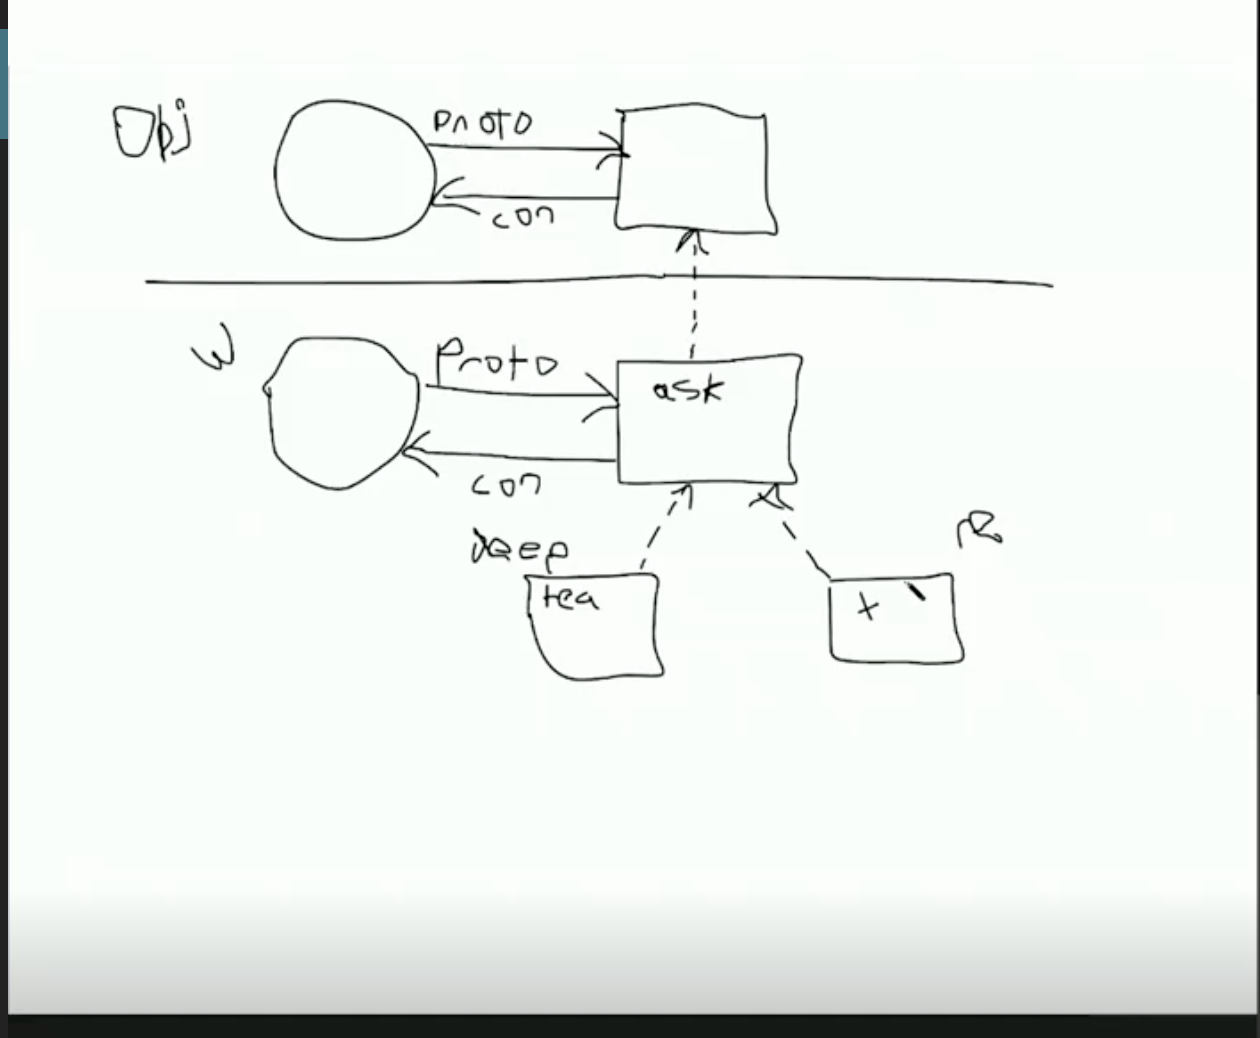 Obj
proto
con
W
Proto
ask
con
deep
tea